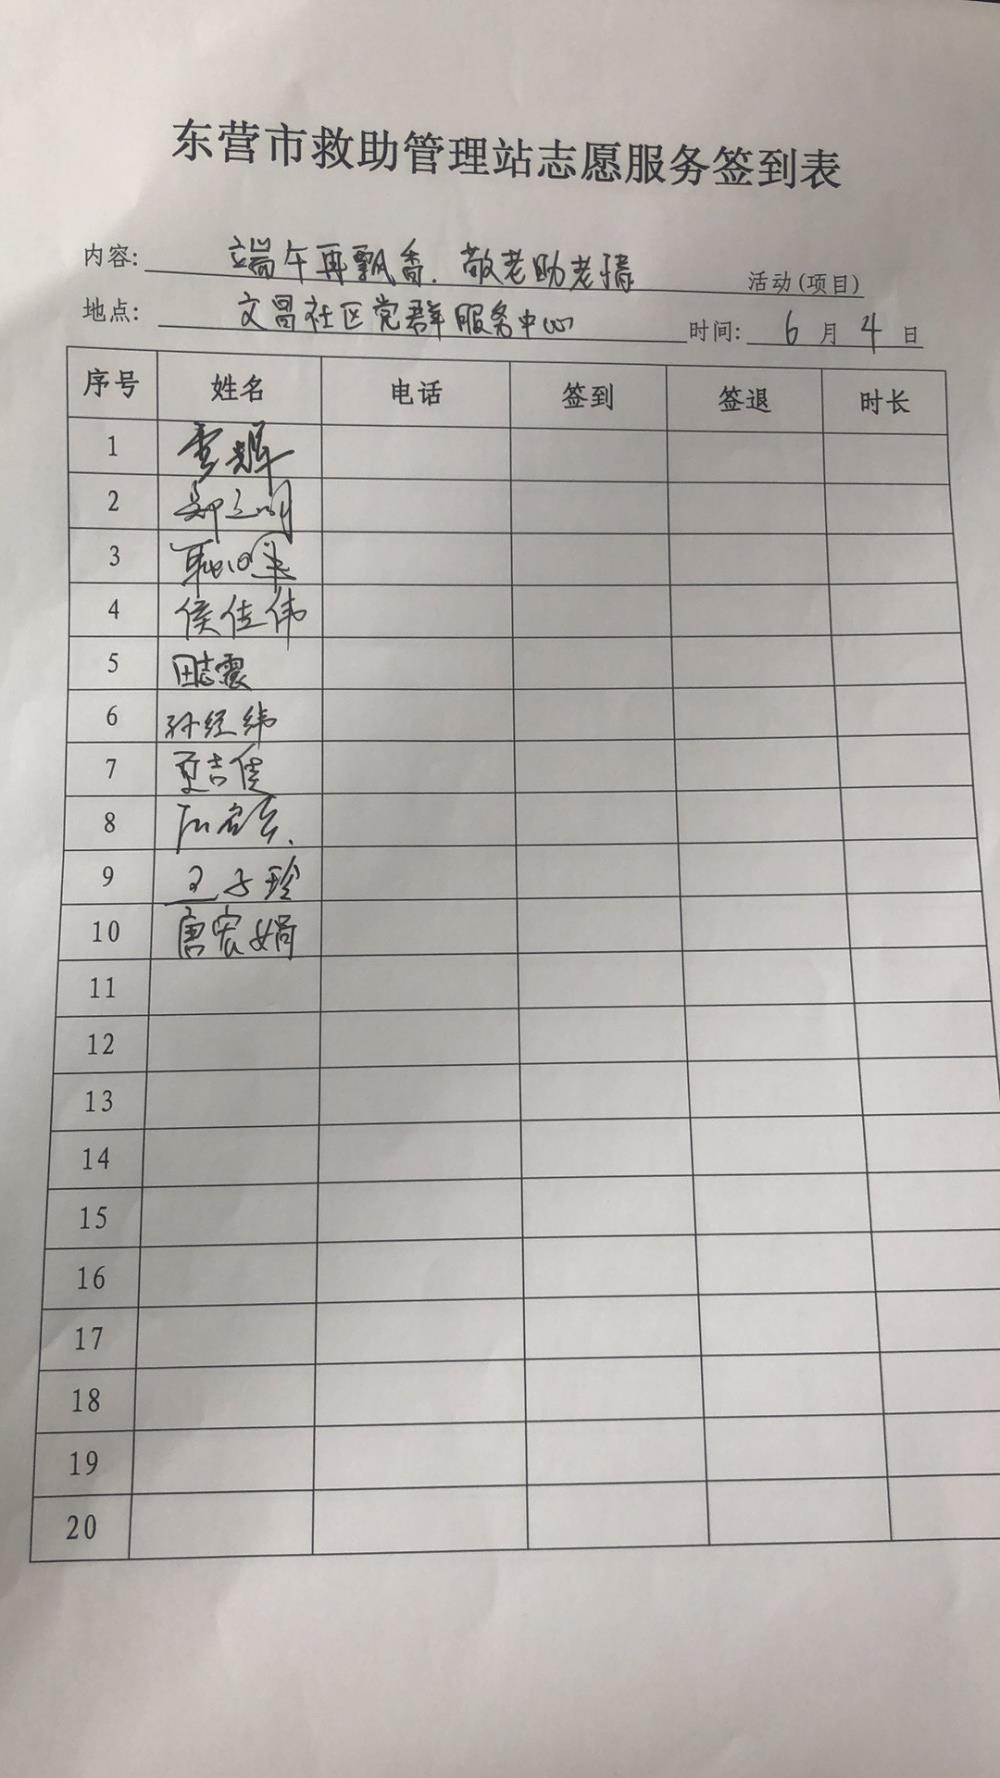 东营市救助管理站志愿服务签到表
内容: 端午再飘香.敬老助老情 活动(项目)
地点: 文昌社区党群服务中心 时间: 6月4日
序号 姓名 电话 签到 签退 时长
1
2
3
4 侯佳伟
5 田志震
6 孙经纬
7 夏吉佳
8
9 王子玲
10 唐宏娟
11
12
13
14
15
16
17
18
19
20